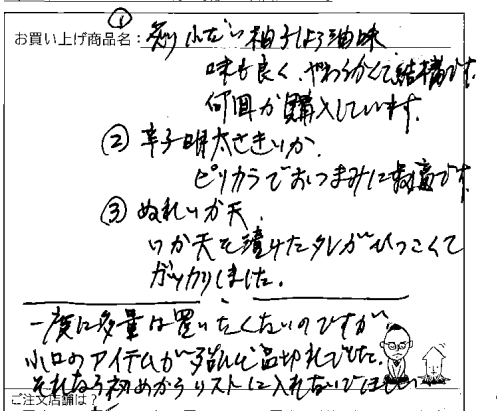 お買い上げ商品名: ① 炙り小だい 柚子しょう油味
味も良く、やわらかくて結構です。
何回か購入しています。
② 辛子明太さきいか。
ピリカラでおつまみに最高です。
③ ぬれいか天。
いか天を漬けたタレがひつこくて
ガッカリしました。
一度に多量は置いたくないのですが
小口のアイテムが殆んど品切れでした。
それなら初めからリストに入れないでほしい
ご注文店舗は?